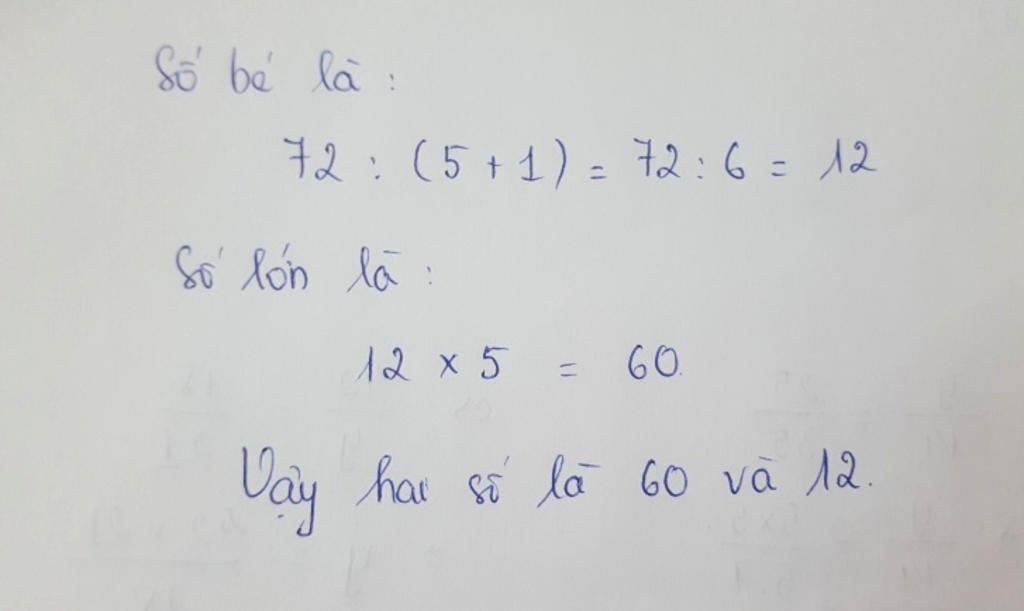 Số bé là :
72 : (5 + 1) = 72 : 6 = 12
Số lớn là :
12 x 5 = 60.
Vậy hai số là 60 và 12.